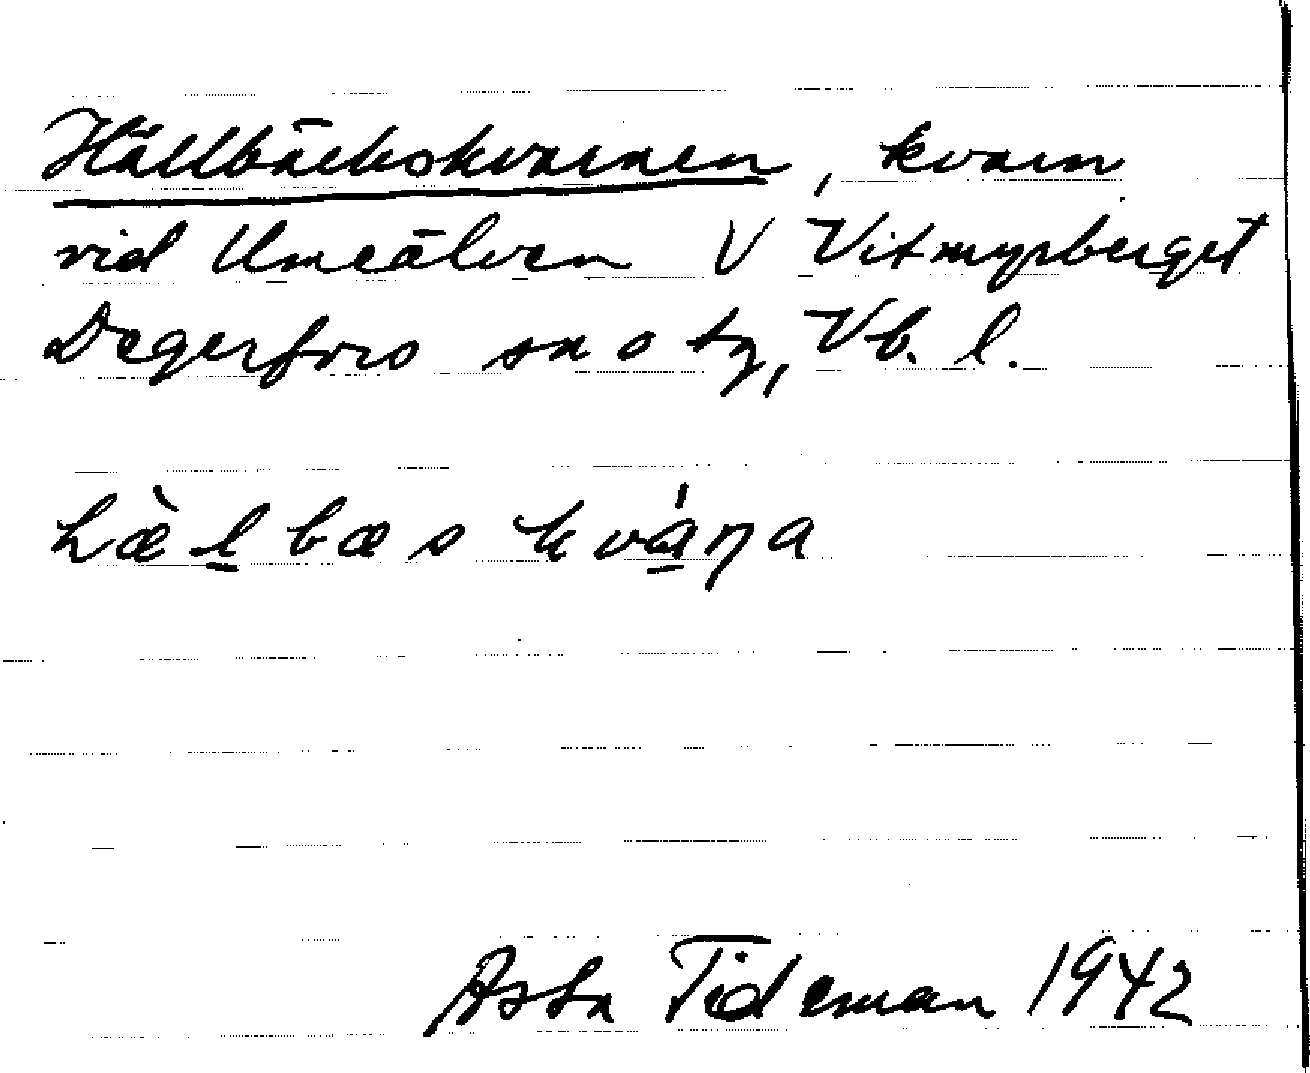 Hällbäckskvarnen, kvarn
vid Umeälven V Vitmyrberget
Degerfors sn o tg, Vb. l.
hæ̀l̲bæskvá̲ɳa
Asta Tideman 1942